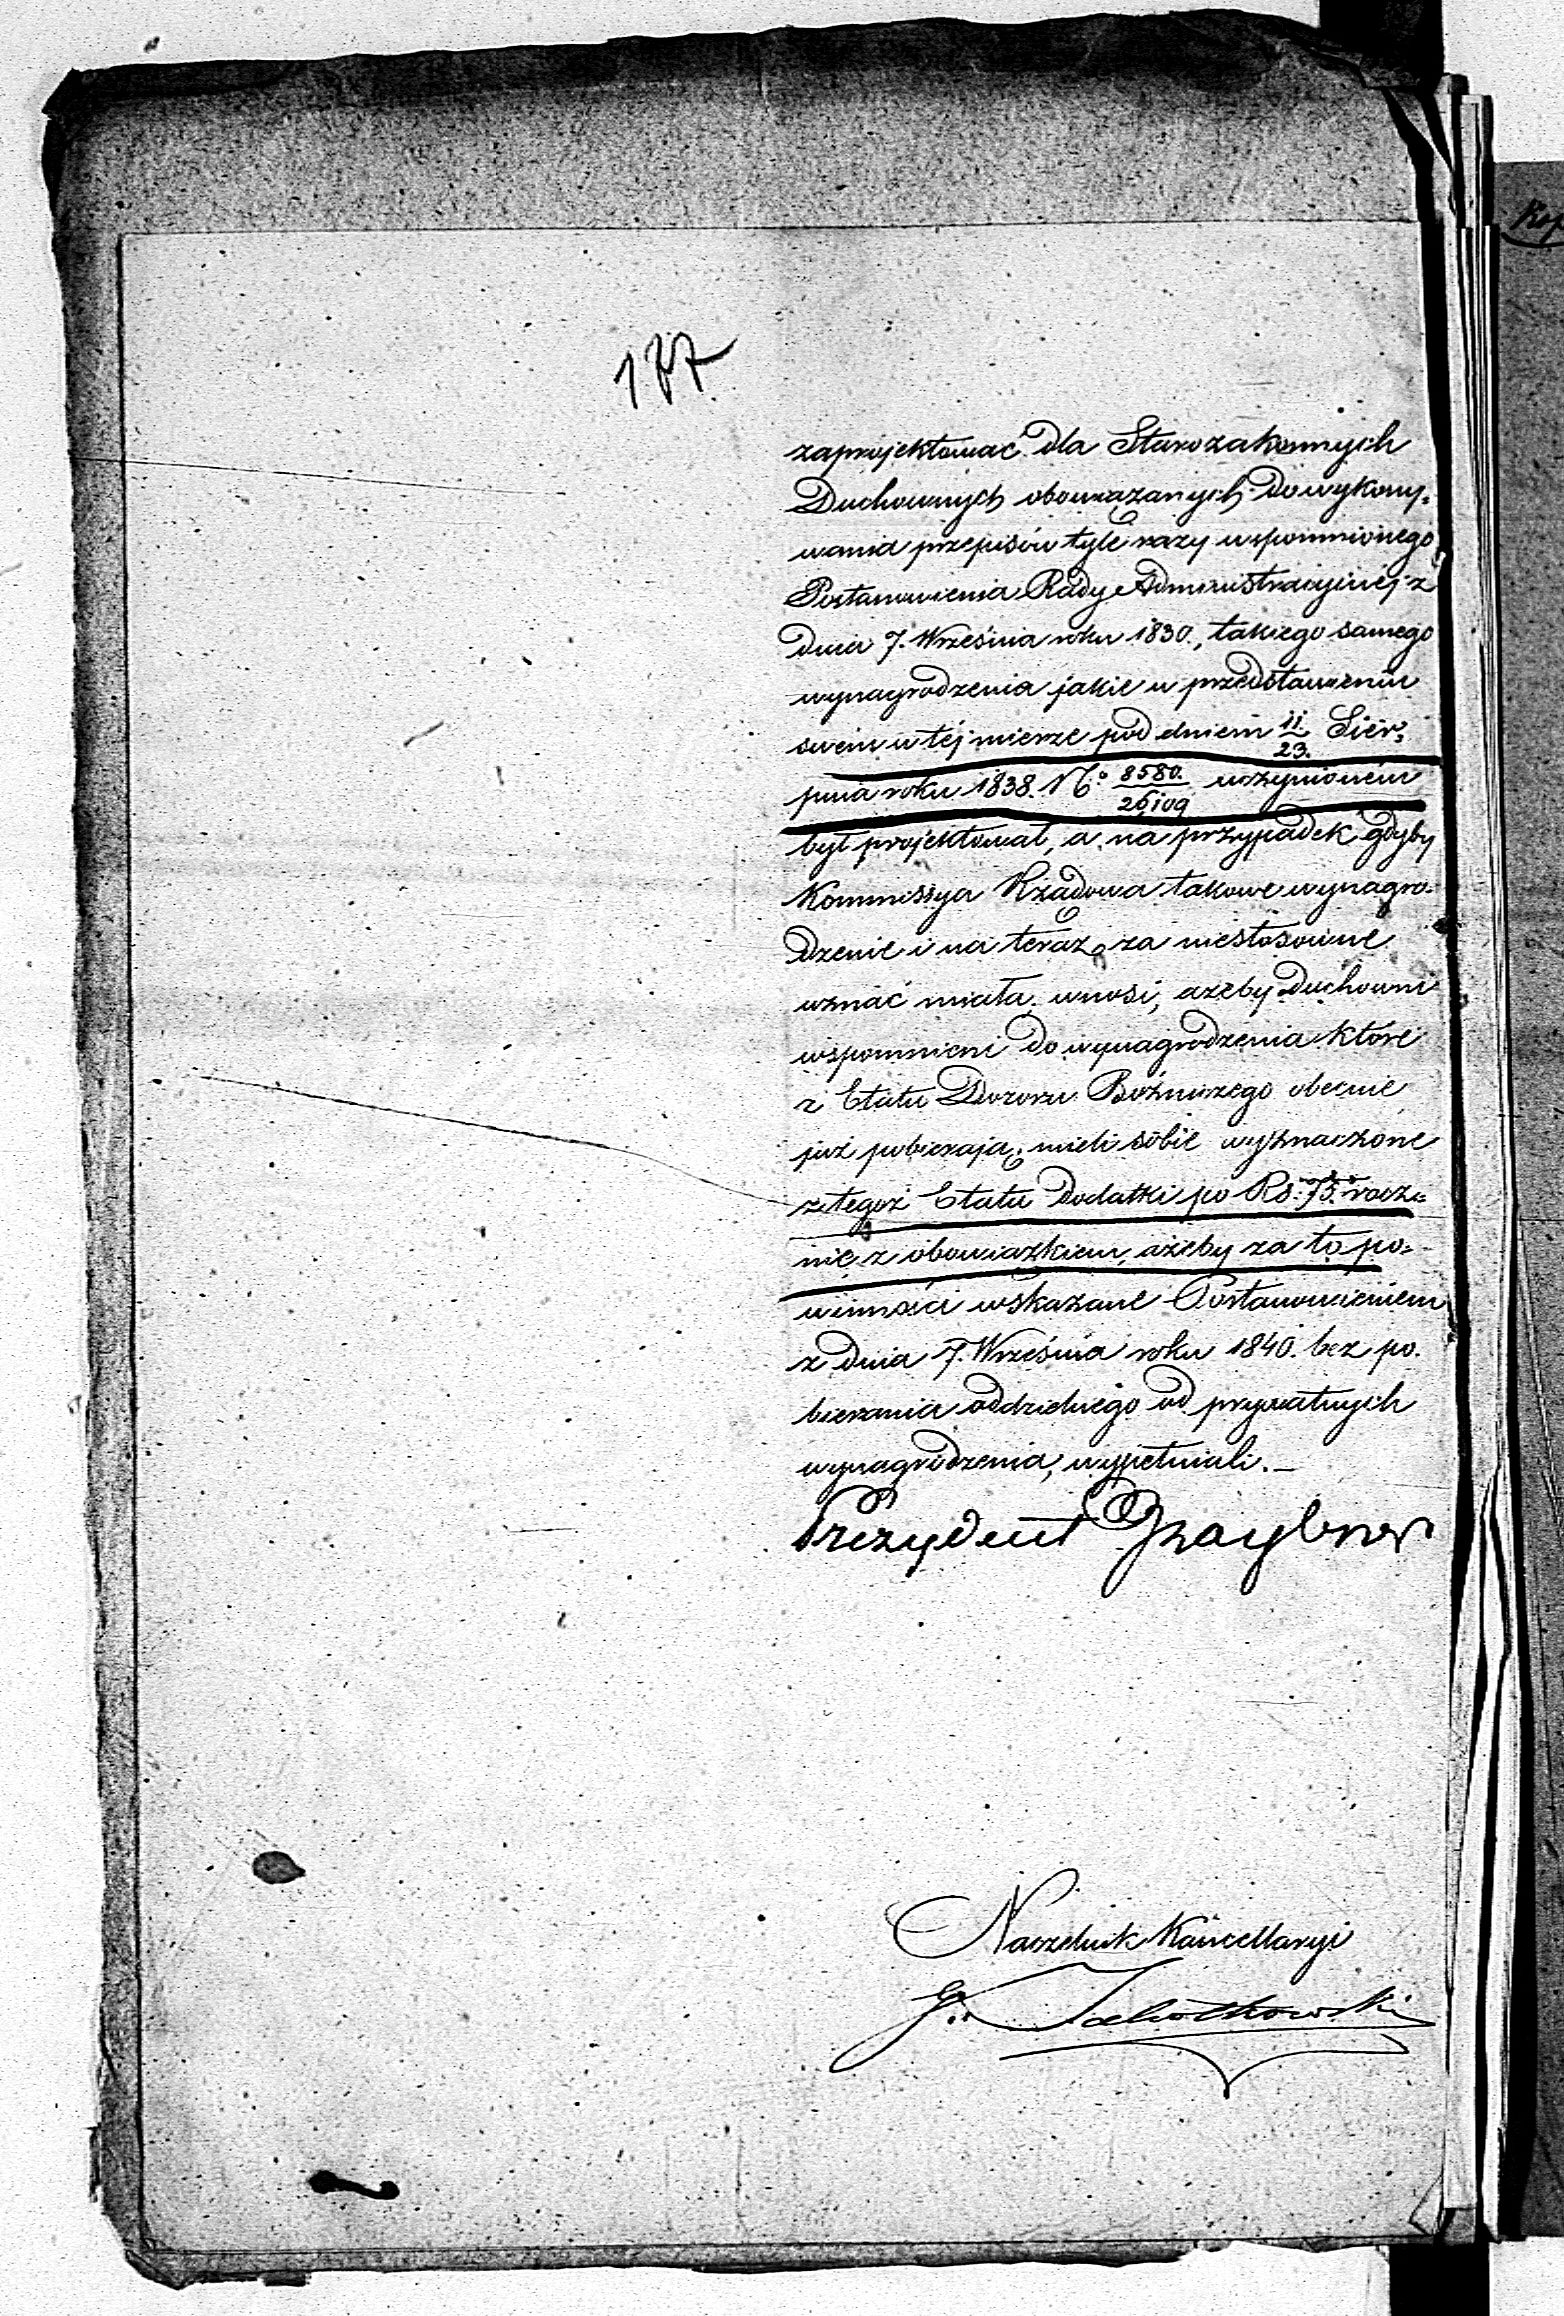 177
zaprojektować dla Starozakonnych
Duchownych obowiązanych do wykony=
wania przepisów tyle razy wspomnionego
Postanowienia Rady Administracyjnej z
dnia 7. Września roku 1830., takiego samego
wynagrodzenia jakie w przedstawieniu
swem w tej mierze pod dniem 11/23. Sier=
pnia roku 1838. No 8580./26,109 uczynionem
był projektował, a na przypadek gdyby
Kommissya Rządowa takowe wynagro=
dzenie i na teraz za niestosowne
uznać miała, wnosi, ażeby Duchowni
wspomnieni do wynagrodzenia które
z Etatu Dozoru Bożniczego obecnie
już pobierają, mieli sobie wyznaczone
z tegoż Etatu dodatki po Rs. 75. rocz=
nie z obowiązkiem, ażeby za to po=
winności wskazane Postanowieniem
z dnia 7. Września roku 1840. bez po=
bierania oddzielnego od prywatnych
wynagrodzenia, wypełniali.—
Prezydent Graybner
Naczelnik Kancellaryi